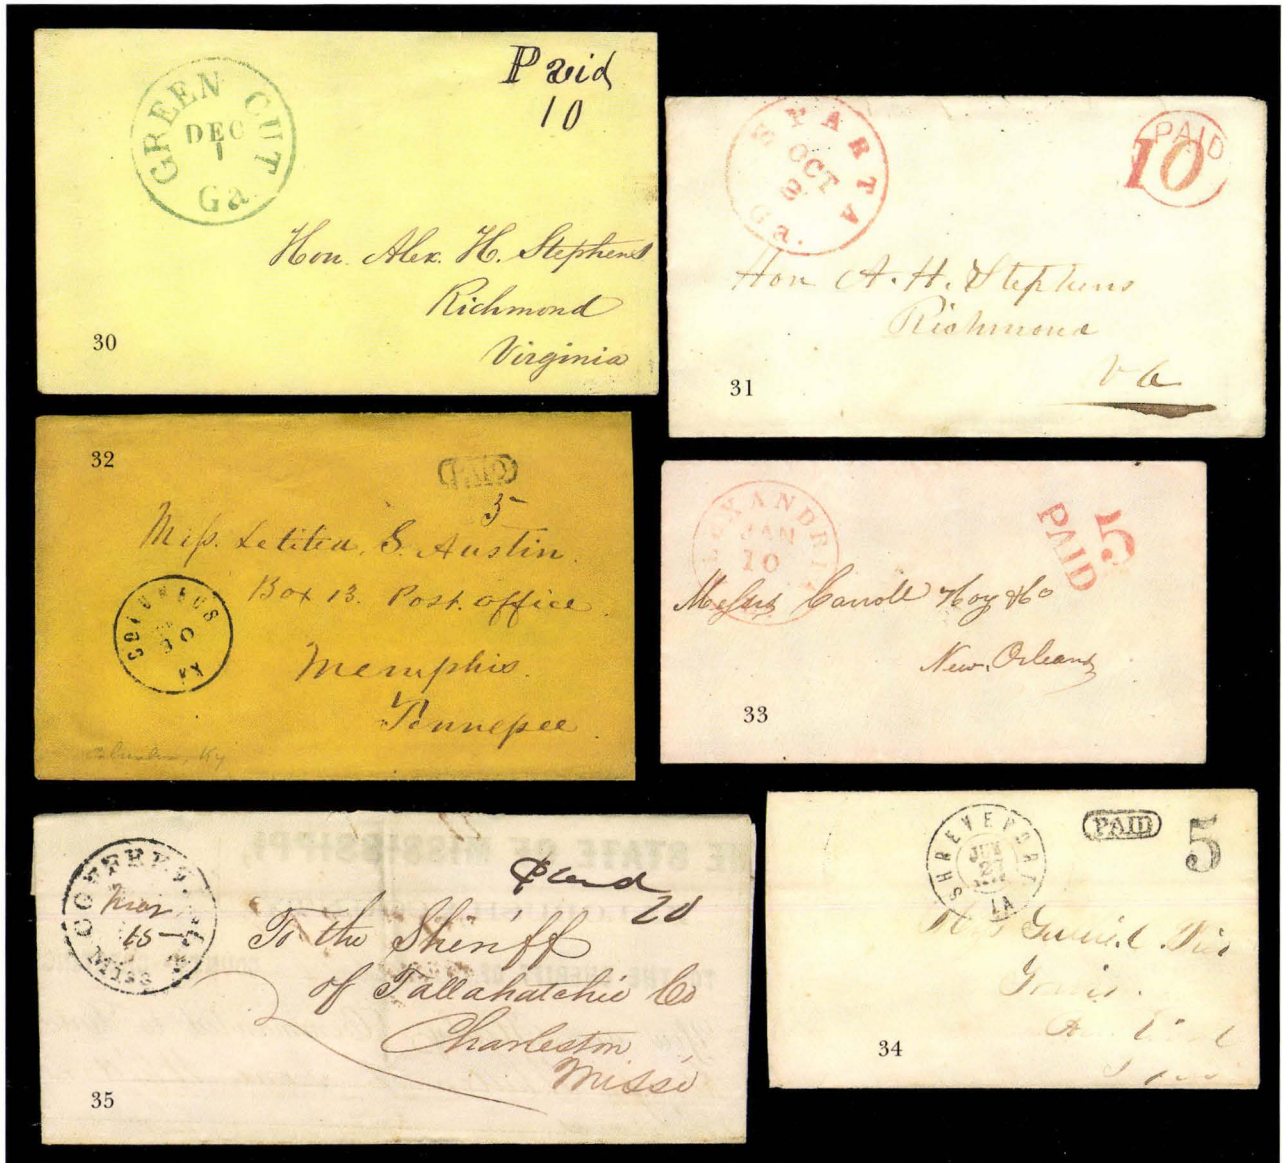 GREEN CUT
DEC
1
Ga.
Paid
10
Hon. Alex. H. Stephens
Richmond
Virginia
30
SPARTA
OCT
2
Ga.
PAID
10
Hon A. H. Stephens
Richmond
Va
31
32
PAID
5
Miss. Letitia. S. Austin.
Box 13. Post. office
Memphis.
Tennessee.
COLUMBUS
30
KY
Columbus, Ky
ALEXANDRIA
JAN
10
5
PAID
Messrs Carroll Hoy & Co
New. Orleans
33
COFFEEVILLE
MISS
Nov
15
Paid
20
To the Sheriff
of Tallahatchie Co
Charleston
Missi
THE STATE OF MISSISSIPPI,
TO THE SHERIFF OF
35
SHREVEPORT
JUN
LA
PAID
5
34